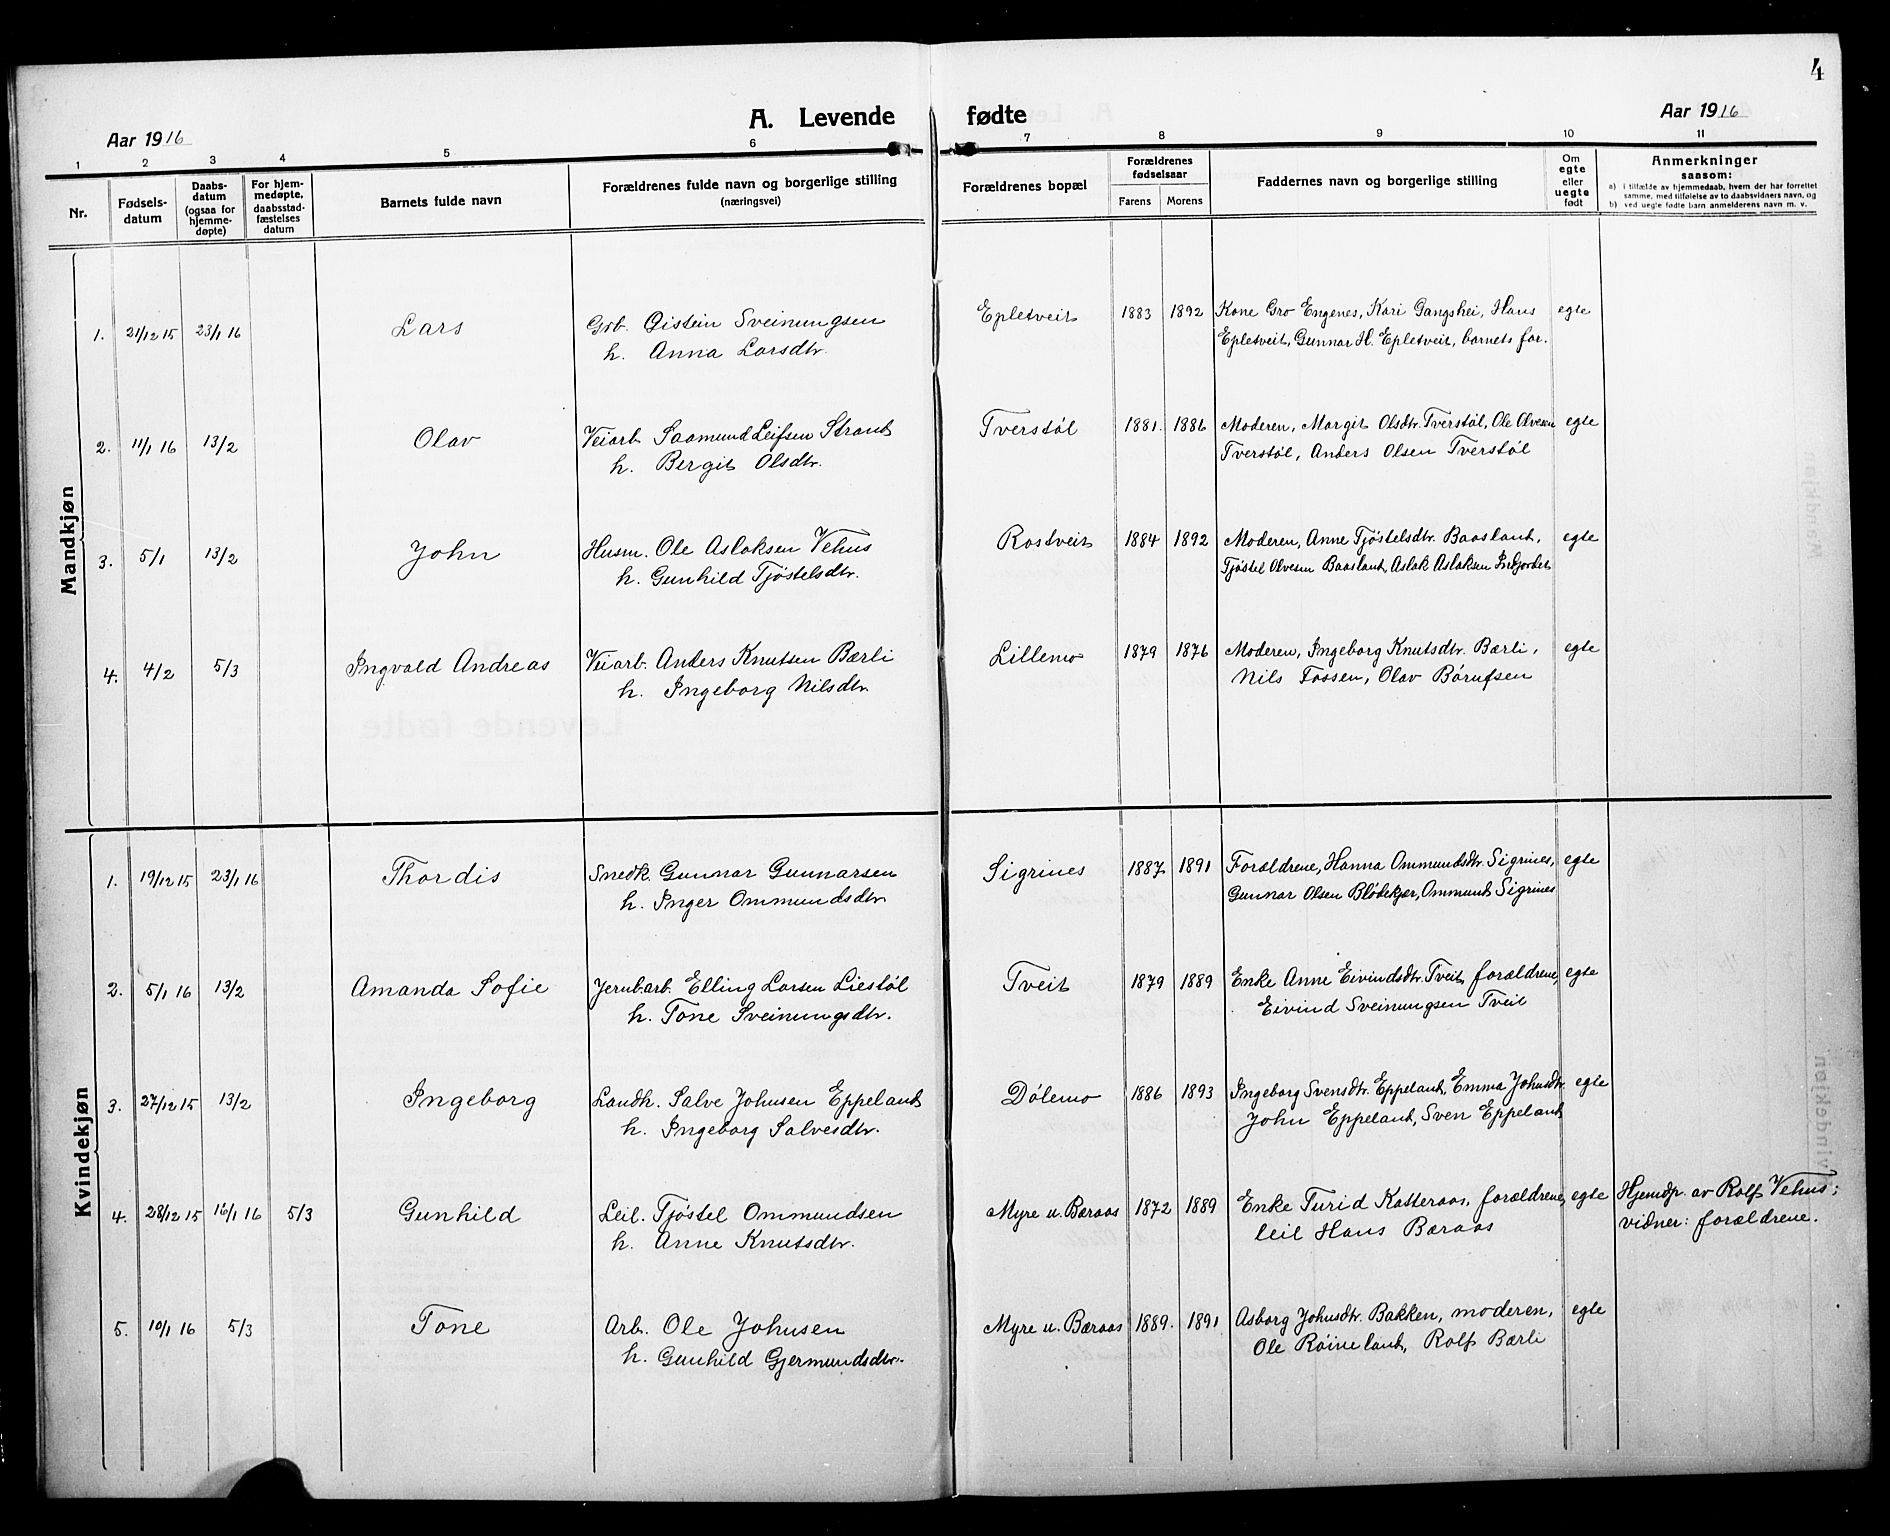 4
A. Levende fødte
Aar 1916
Aar 1916
1 2 3 4 5 6 7 8 9 10 11
Nr.
Fødsels-
datum
Daabs-
datum
(ogsaa for
hjemme-
døpte)
For hjem-
medøpte,
daabsstad-
fæstelses
datum
Barnets fulde navn
Forældrenes fulde navn og borgerlige stilling
(næringsvei)
Forældrenes bopæl
Forældrenes
fødselsaar
Farens Morens
Faddernes navn og borgerlige stilling
Om
egte
eller
uegte
født
Anmerkninger
saasom:
a) i tilfælde av hjemmedaab, hvem der har forrettet
samme, med tilføielse av to daabsvidners navn, og
b) ved uegte fødte barn anmelderens navn m. v.
Mandkjøn
1. 21/12 15 23/1 16 Lars Grb. Øistein Sveinungsen Epletveit 1883 1892 Kone Gro Engenes, Kari Gangshei, Hans egte
h. Anna Larsdtr. Epletveit, Gunnar H. Epletveit, barnets far.
2. 11/1 16 13/2 Olav Veiarb. Saamund Leifsen Strand Tverstøl 1881. 1886 Moderen, Margit Olsdtr. Tverstøl, Ole Olvesen egte
h. Bergit Olsdtr. Tverstøl, Anders Olsen Tverstøl
3. 5/1 13/2 John Husm. Ole Aslaksen Vehus Rostveit 1884 1892 Moderen, Anne Tjøstelsdtr. Baasland, egte
h. Gunhild Tjøstelsdtr. Tjøstel Olvesen Baasland, Aslak Aslaksen Indjordet
4. 4/2 5/3 Ingvald Andreas Veiarb. Anders Knutsen Bærli Lillemo 1879 1876 Moderen, Ingeborg Knutsdtr. Bærli, egte
h. Ingeborg Nilsdtr. Nils Fossen, Olav Børufsen
Kvindekjøn
1. 19/12 15 23/1 16 Thordis Snedk. Gunnar Gunnarsen Sigrines 1887 1891 Forældrene, Hanna Ommundsdtr. Sigrines, egte
h. Inger Ommundsdtr. Gunnar Olsen Blødekjær, Ommund Sigrines
2. 5/1 16 13/2 Amanda Sofie Jernb.arb. Elling Larsen Liestøl Tveit 1879 1889 Enke Anne Eivindsdtr. Tveit, forældrene, egte
h. Tone Sveinungsdtr. Eivind Sveinungsen Tveit
3. 27/12 15 13/2 Ingeborg Landh. Salve Johnsen Eppeland Dølemo 1886 1893 Ingeborg Svensdtr. Eppeland, Emma Johnsdtr. egte
h. Ingeborg Salvesdtr. John Eppeland, Sven Eppeland
4. 28/12 15 16/1 16 5/3 Gunhild Leil. Tjøstel Ommundsen Myre u. Bæraas 1872 1889 Enke Turid Katteraas, forældrene, egte Hjemdp. av Rolf Vehus;
h. Anne Knutsdtr. leil Hans Bæraas vidner: forældrene.
5. 10/1 16 5/3 Tone Arb. Ole Johnsen Myre u. Bæraas 1889. 1891 Asborg Johnsdtr. Bakken, moderen, egte
h. Gunhild Gjermundsdtr. Ole Røineland, Rolf Bærli